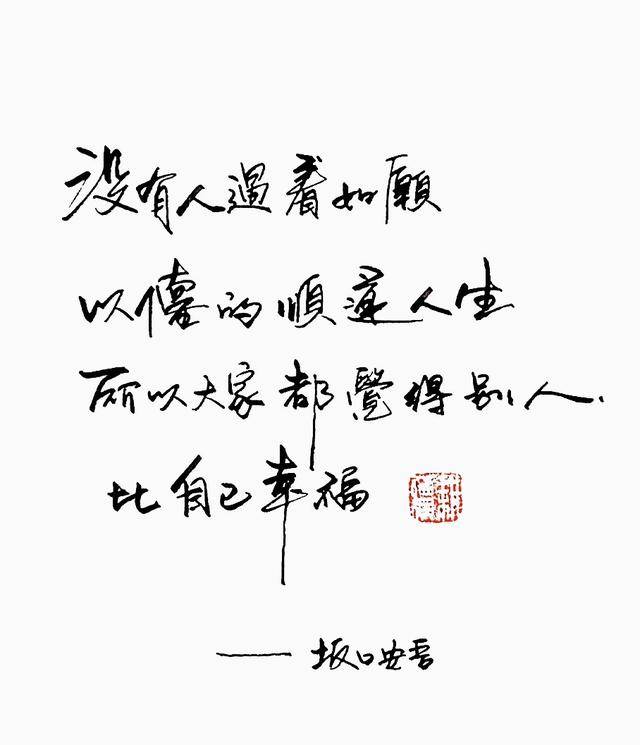 没有人過着如願
以償的順遂人生
所以大家都覺得別人
比自己幸福
—— 坂口安吾